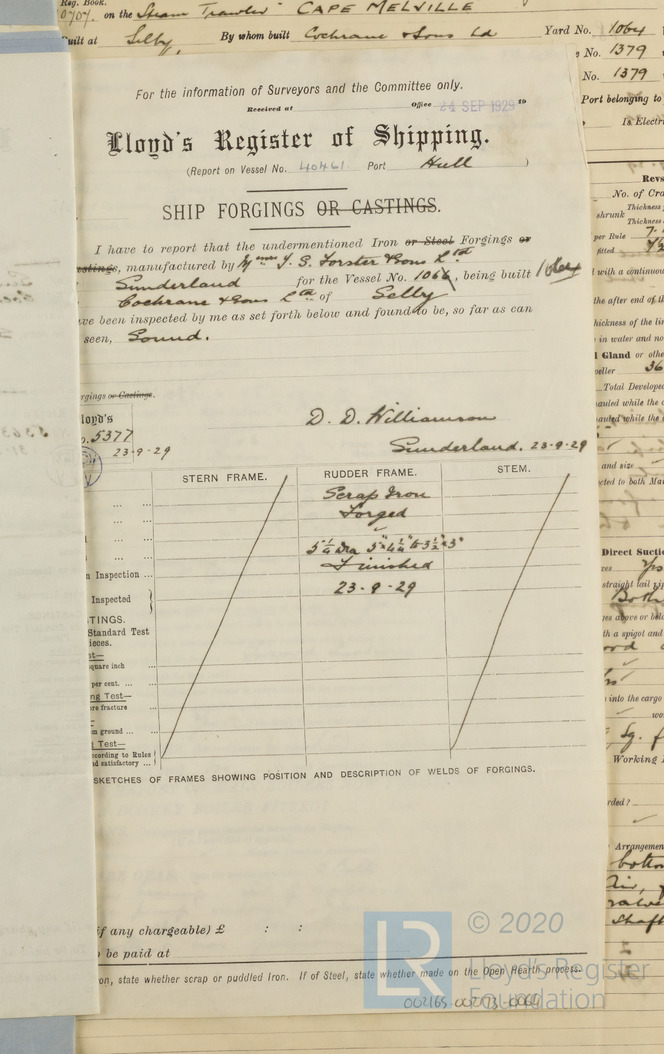 Reg. Book.
on the Steam Trawler CAPE MELVILLE
Built at Selby, By whom built Cochrane & Sons Ld Yard No. 1064
No. 1379
No. 1379
Port belonging to
Is Electri
For the information of Surveyors and the Committee only.
Received at Office 24 SEP 1929 19
Lloyd's Register of Shipping.
(Report on Vessel No. 40461. Port Hull )
SHIP FORGINGS OR CASTINGS.
I have to report that the undermentioned Iron or Steel Forgings or
Castings, manufactured by Messrs J. S. Forster & Sons Ltd
Sunderland for the Vessel No. 1066, being built 1064
Cochrane & Sons Ltd of Selby
have been inspected by me as set forth below and found to be, so far as can
seen, Sound.
rgings or Castings.
loyd's
o. 5377
23-9-29
D. D. Williamson
Sunderland. 23-9-29
STERN FRAME. RUDDER FRAME. STEM.
Scrap Iron
Forged
5¼" dia 5" 4¼" to 3½" x 3"
n Inspection ... Finished
Inspected 23-9-29
STINGS.
Standard Test
ieces.
st—
square inch ...
per cent. ... ...
ng Test—
re fracture ...
m ground ... ...
g Test—
ccording to Rules
nd satisfactory ...
SKETCHES OF FRAMES SHOWING POSITION AND DESCRIPTION OF WELDS OF FORGINGS.
if any chargeable) £ : :
o be paid at
on, state whether scrap or puddled Iron. If of Steel, state whether made on the Open Hearth process.
002165-002173-0064
LR © 2020
Lloyd's Register
Foundation
Revs
No. of Cra
Thickness
shrunk Thickness
per Rule
fitted
l with a continuou
the after end of th
hickness of the lin
in water and no
l Gland or othe
peller 36
Total Develope
auled while the
auled while the
and size
cted to both Ma
Direct Sucti
res yes
straight tail pip
Both
ges above or belo
th a spigot and
into the cargo
wo
Working
rded?
Arrangemen
bottom
Air,
Shaft